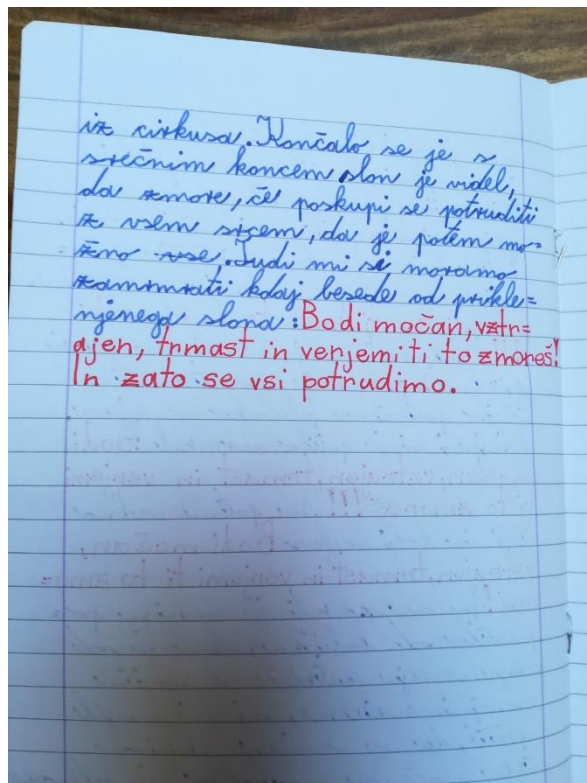 iz cirkusa. Končalo se je s
srečnim koncem slon je videl,
da zmore, če poskupi se potruditi
z vsem srcem, da je potem mo-
žno vse. Tudi mi si moramo
zammrati kdaj besede od prikle=
njenega slona: Bodi močan, vztr=
ajen, trmast in verjemi ti to zmoreš!
In zato se vsi potrudimo.